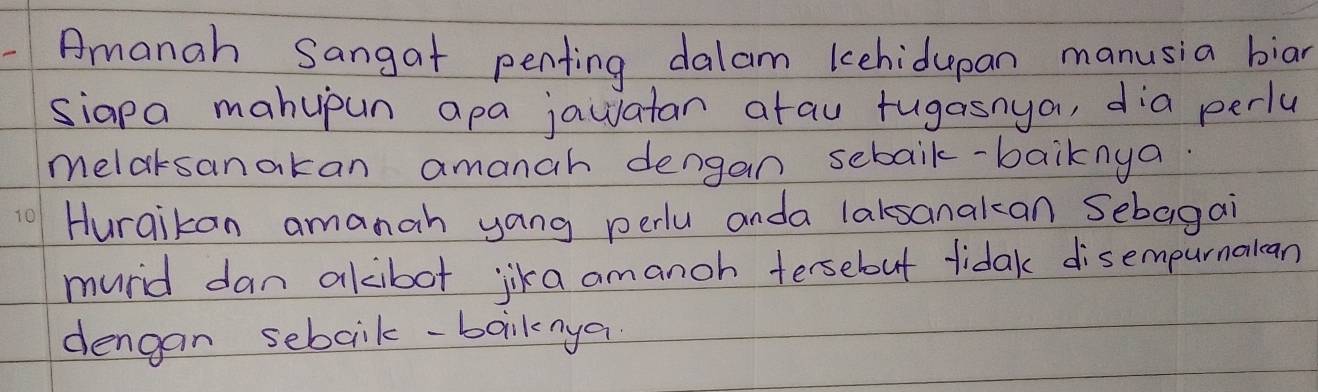 - Amanah sangat penting dalam kehidupan manusia biar
siapa mahupun apa jawatan atau tugasnya, dia perlu
melaksanakan amanah dengan sebaik-baiknya.
10 Huraikan amanah yang perlu anda laksanakan sebagai
murid dan akibat jika amanah tersebut tidak disempurnakan
dengan sebaik-baiknya.